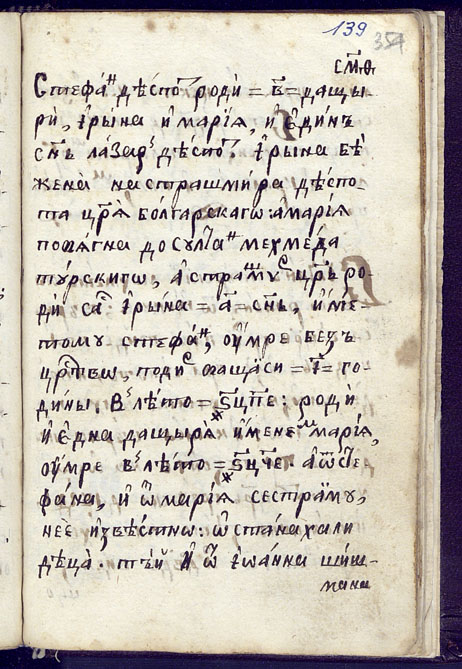 139
351
смѳ
Стефан дѣспо роди = в҃ = дащы-
ри, ірына и марїя, и єдинъ
сн҃ъ лазаръ дѣспо. ірына бѣ
жена на страшмира дѣспо-
та цр҃я болгарскагѡ. а марїя
посягна до султан мехмеда
турскигѡ, а страшму цр҃ъ ро-
ди са ірына = а҃ = сн҃ъ, и име-
тому стефан, ѹмре безъ
цртвѡ, поди = і҃ = го-
дины. Въ лѣто = ѕ҃цпе: роди
и єдна дащыря имене марїя,
ѹмре въ лѣто = ѕ҃цче. а ѿ сте-
фана, и ѿ марїя сестраму,
неє извѣстнѡ: ѡстана х али
дѣца. тѣй и ѿ іѡанна шиш-
мана